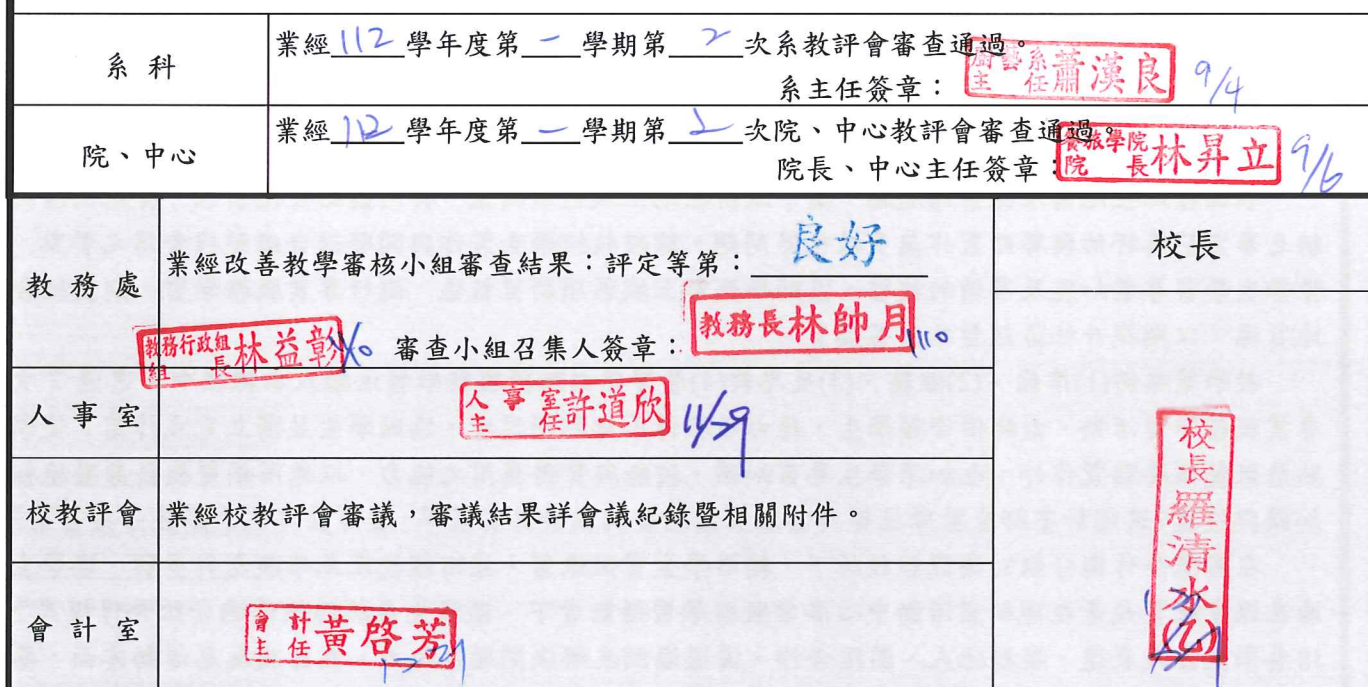 系科
業經112學年度第一學期第2次系教評會審查通過。
系主任簽章：
廚藝系主任蕭漢良 9/4
院、中心
業經112學年度第一學期第 次院、中心教評會審查通過。
院長、中心主任簽章：
餐旅學院院長林昇立 9/6
教務處
業經改善教學審核小組審查結果：評定等第：良好
教務行政組組長林益彰 審查小組召集人簽章：教務長林帥月
校長
人事室
人事室主任許道欣 11/29
校教評會
業經校教評會審議，審議結果詳會議紀錄暨相關附件。
校長羅清水
會計室
會計主任黃啓芳